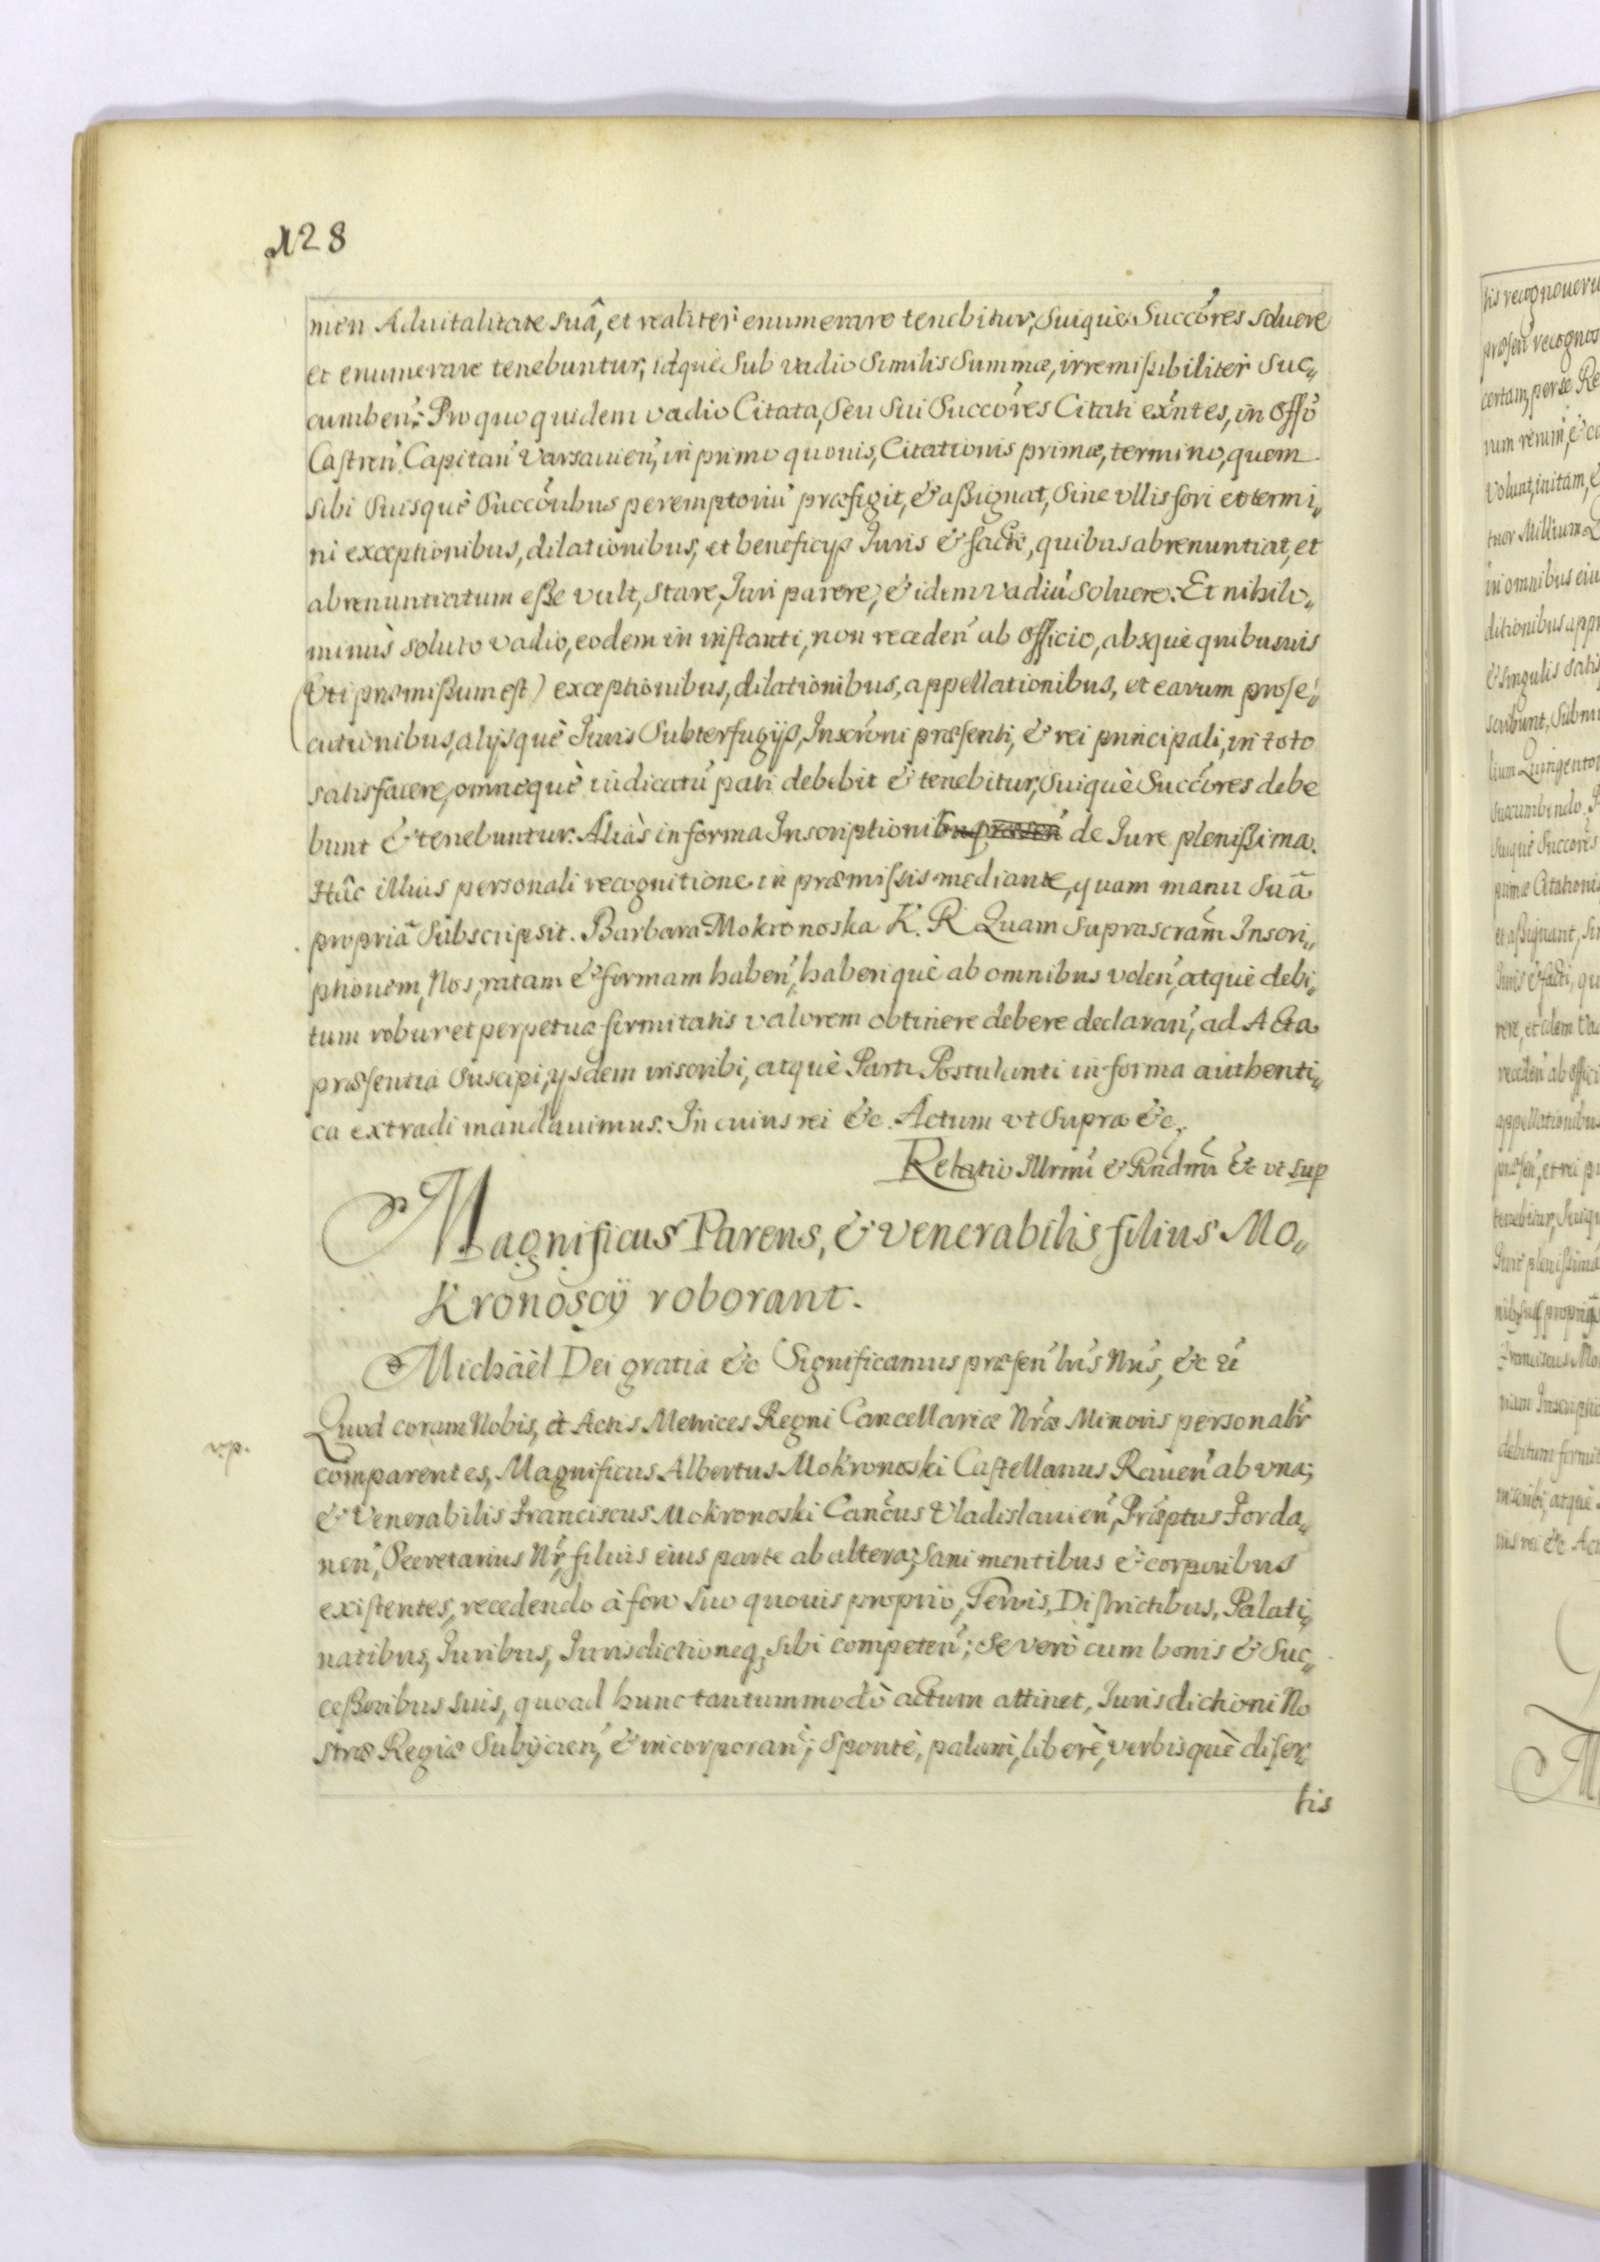 128
men Aduitalitate suâ, et realiter enumerare tenebitur, suiquè Succo͂res soluere
et enumerare tenebuntur, idquè sub vadio similis summæ, irremissibiliter suc„
cumben͂: Pro quo quidem vadio Citata, seu sui Succo͂res Citati ex͂ntes, in Offo͂
Castren͂ Capitan͂ Varsauien͂, in primo quouis, Citationis primæ, termino, quem
sibi suisquè Succo͂ribus peremptoriu͂ præfigit, & aßignat, Sine vllis fori et termi„
ni exceptionibus, dilationibus, et beneficijs Juris & facti, quibus abrenuntiat, et
abrenuntiatum eße vult, stare, Juri parere, & idem vadiu͂ soluere. Et nihilo„
minùs soluto vadio, eodem in instanti, non receden͂ ab Officio, absquè quibusuis
(Vti præmißum est) exceptionibus, dilationibus, appellationibus, et earum prose„
cutionibus, alijsquè Juris Subterfugijs, Inscro͂ni præsenti, & rei principali, in toto
satisfacere, omnequè iudicatu͂ pati debebit & tenebitur, suiquè Succo͂res debe
bunt & tenebuntur. Aliàs in forma Inscriptionib de Jure plenißima.
Hâc illius personali recognitione in præmissis mediante, quam manu suâ
propriâ subscripsit. Barbara Mokronoska K. R Quam suprascra͂m Inscri„
ptionem, Nos, ratam & formam haben͂, haberiquè ab omnibus volen͂, atquè debi„
tum robur et perpetuæ firmitatis valorem obtinere debere declaran͂, ad Acta
præsentia suscipi, ijsdem inscribi, atquè Parti Postulanti in forma authenti„
ca extradi mandauimus. In cuius rei &c. Actum vt supra &c.
Relatio Illrmi͂ & Rndmi͂ &c vt sup
Magnificus Parens, & venerabilis filius Mo„
Kronoscÿ roborant.
Michäèl Dei gratia &c Significamus præsen͂ lr͂is Nr͂is, &c
Quod coram Nobis, et Actis Metrices Regni Cancellariæ Nr͂æ Minoris personalr͂
v.p.
comparentes, Magnificus Albertus Mokronoski Castellanus Rauen͂ ab vna;
& Venerabilis Franciscus Mokronoski Canc͂us Vladislauien͂, Præ͂ptus Jorda„
nen͂, Secretarius Nr͂, filius eius parte ab altera; Sani mentibus & corporibus
existentes, recedendo à foro suo quouis proprio, Terris, Districtibus, Palati„
natibus, Juribus, Jurisdictioneq, sibi competen͂; Se verò cum bonis & Suc„
ceßoribus suis, quoad hunc tantummodò actum attinet, Jurisdictioni No
stræ Regiæ Subijcien͂, & incorporan͂; Spontè, palam, liberè, verbisquè diser„
tis